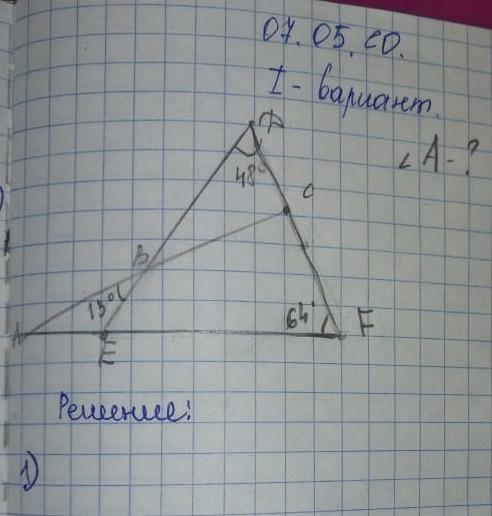 07.05.20.
I - вариант.
D
< A - ?
48°
C
B
15°
64°
F
A
E
Решение:
1)